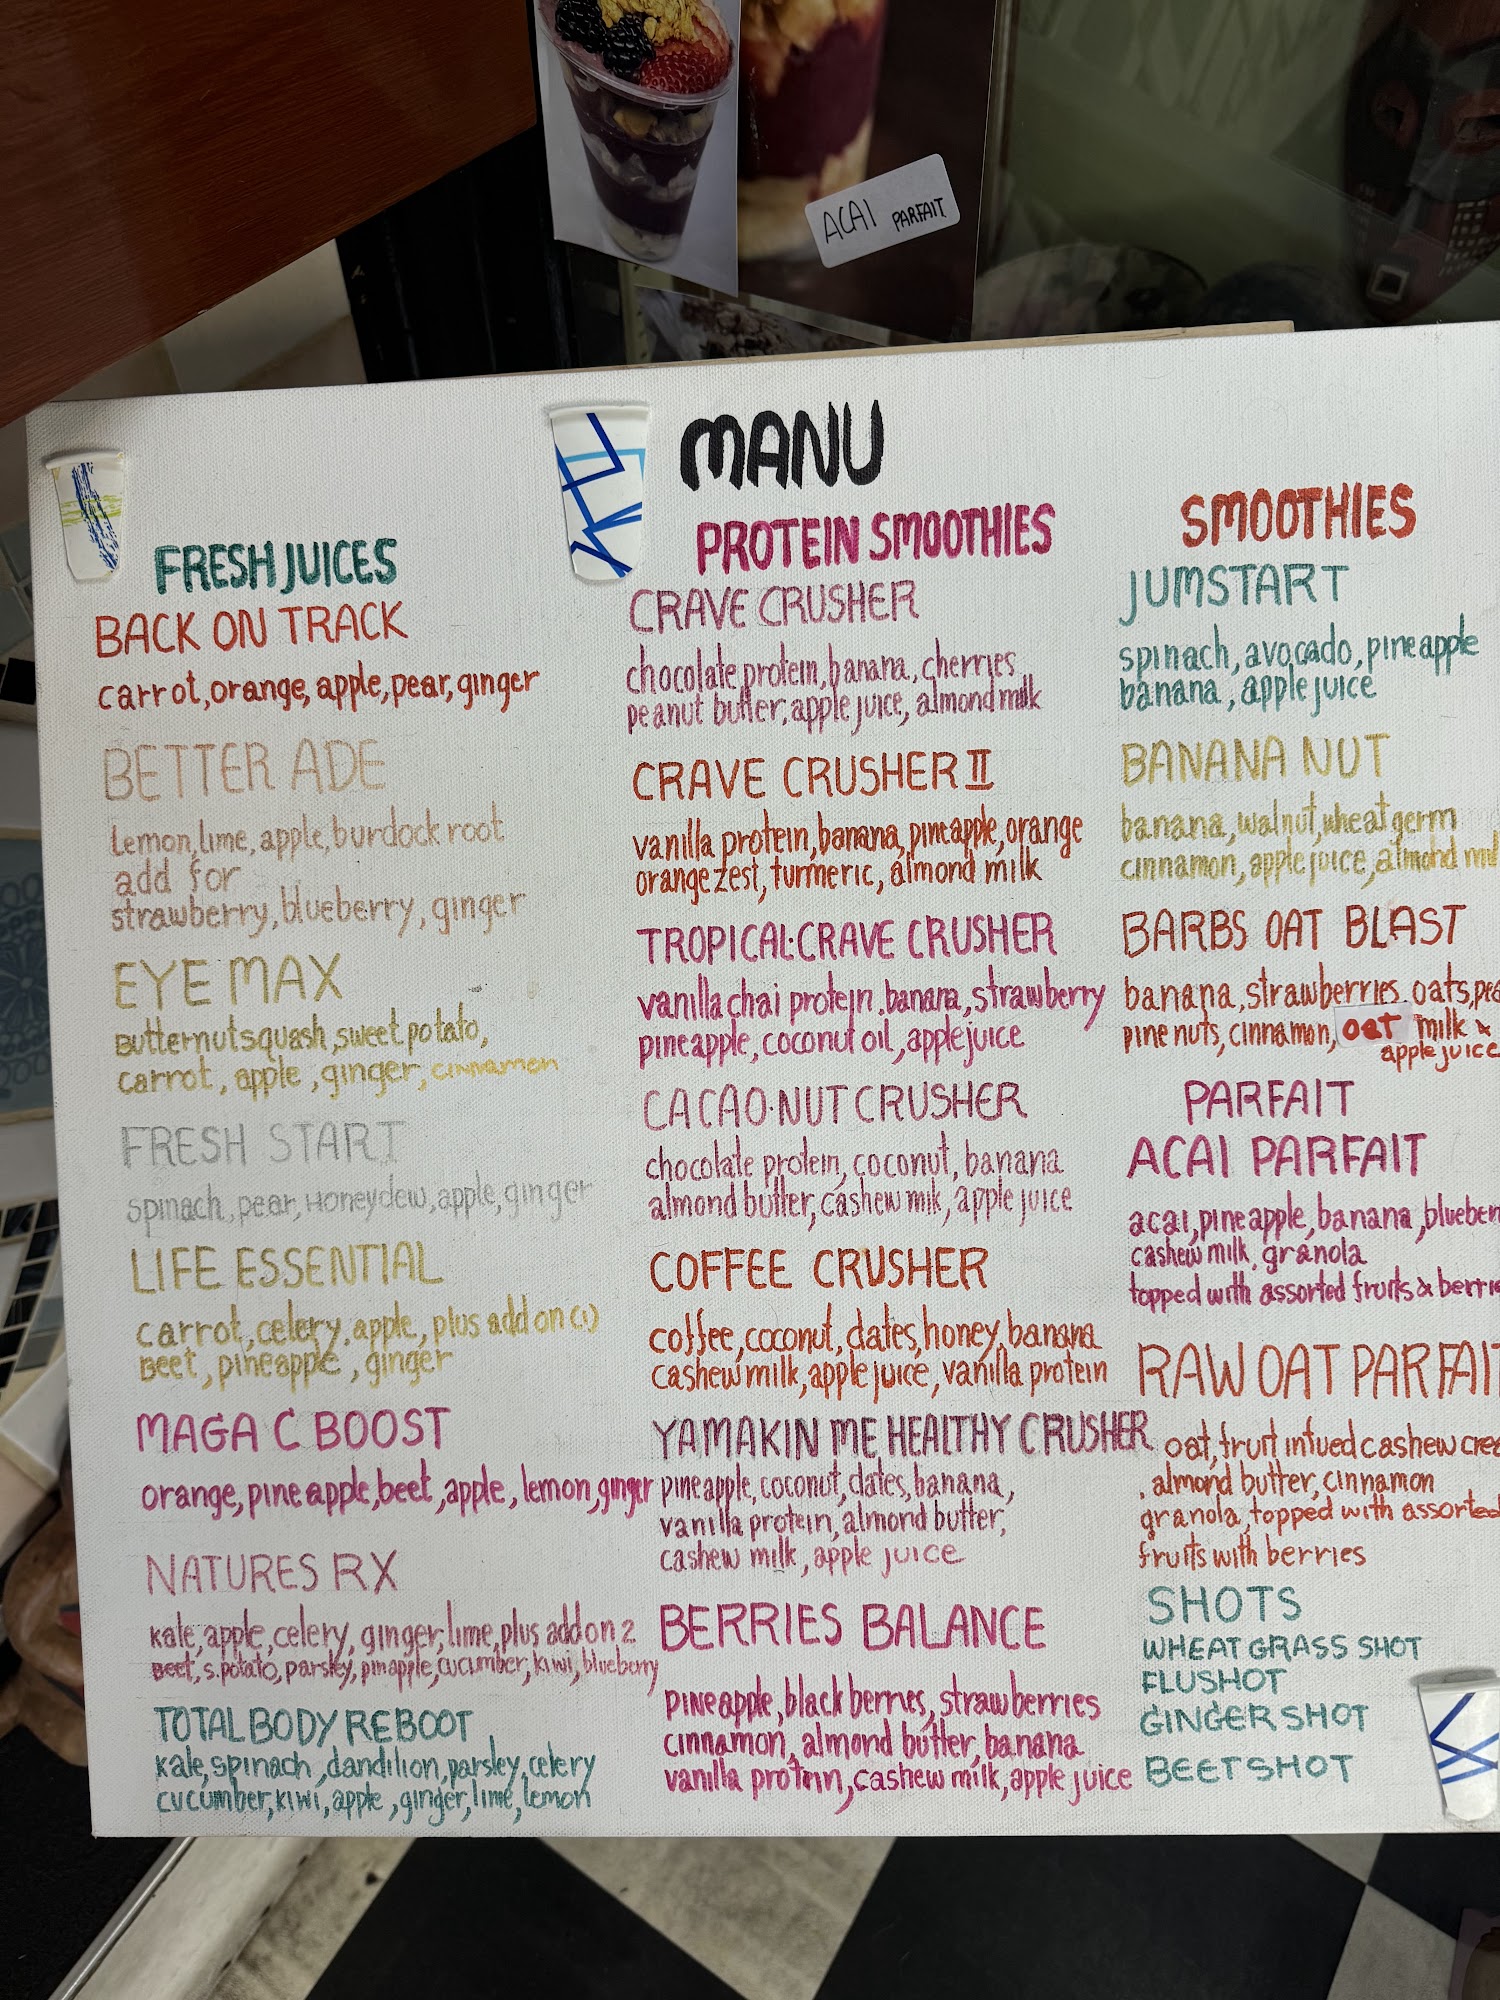 ACAI PARFAIT
MANU
FRESH JUICES
BACK ON TRACK
carrot, orange, apple, pear, ginger
BETTER ADE
lemon, lime, apple, burdock root
add for
strawberry, blueberry, ginger
EYE MAX
butternut squash, sweet potato,
carrot, apple, ginger, cinnamon
FRESH START
spinach, pear, Honeydew, apple, ginger
LIFE ESSENTIAL
carrot, celery, apple, plus add on (1)
Beet, pineapple, ginger
MAGA C BOOST
orange, pineapple, beet, apple, lemon, ginger
NATURES RX
kale, apple, celery, ginger, lime, plus add on 2
Beet, s.potato, parsley, pinapple, cucumber, kiwi, blueberry
TOTAL BODY REBOOT
kale, spinach, dandilion, parsley, celery
cucumber, kiwi, apple, ginger, lime, lemon
PROTEIN SMOOTHIES
CRAVE CRUSHER
chocolate protein, banana, cherries
peanut butter, apple juice, almond milk
CRAVE CRUSHER II
vanilla protein, banana, pineapple, orange
orange zest, turmeric, almond milk
TROPICAL·CRAVE CRUSHER
vanilla chai protein. banana, strawberry
pineapple, coconut oil, apple juice
CACAO·NUT CRUSHER
chocolate protein, coconut, banana
almond butter, cashew milk, apple juice
COFFEE CRUSHER
coffee, coconut, dates, honey, banana
cashew milk, apple juice, vanilla protein
YAMAKIN ME HEALTHY CRUSHER
pineapple, coconut, dates, banana,
vanilla protein, almond butter,
cashew milk, apple juice
BERRIES BALANCE
pineapple, black berries, strawberries
cinnamon, almond butter, banana
vanilla protein, cashew milk, apple juice
SMOOTHIES
JUMSTART
spinach, avocado, pineapple
banana, apple juice
BANANA NUT
banana, walnut, wheat germ
cinnamon, apple juice, almond mil
BARBS OAT BLAST
banana, strawberries. oats, pea
pine nuts, cinnamon, oat milk &
apple juice
PARFAIT
ACAI PARFAIT
acai, pineapple, banana, blueber
cashew milk, granola
topped with assorted fruits & berrie
RAW OAT PARFAIT
oat, fruit infued cashew cre
, almond butter, cinnamon
granola, topped with assorted
fruits with berries
SHOTS
WHEAT GRASS SHOT
FLUSHOT
GINGER SHOT
BEET SHOT